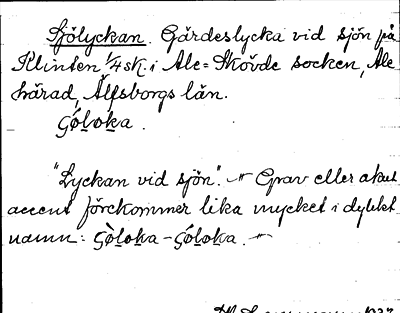 Sjölyckan. Gärdeslycka vid sjön på
Klinten 1/4 sk. i Ale=Skövde socken, Ale
härad, Älfsborgs län.
Sǵóloka.
"Lyckan vid sjön". Grav eller akut
accent förekommer lika mycket i dylikt
namn: Gòloka - Góloka.